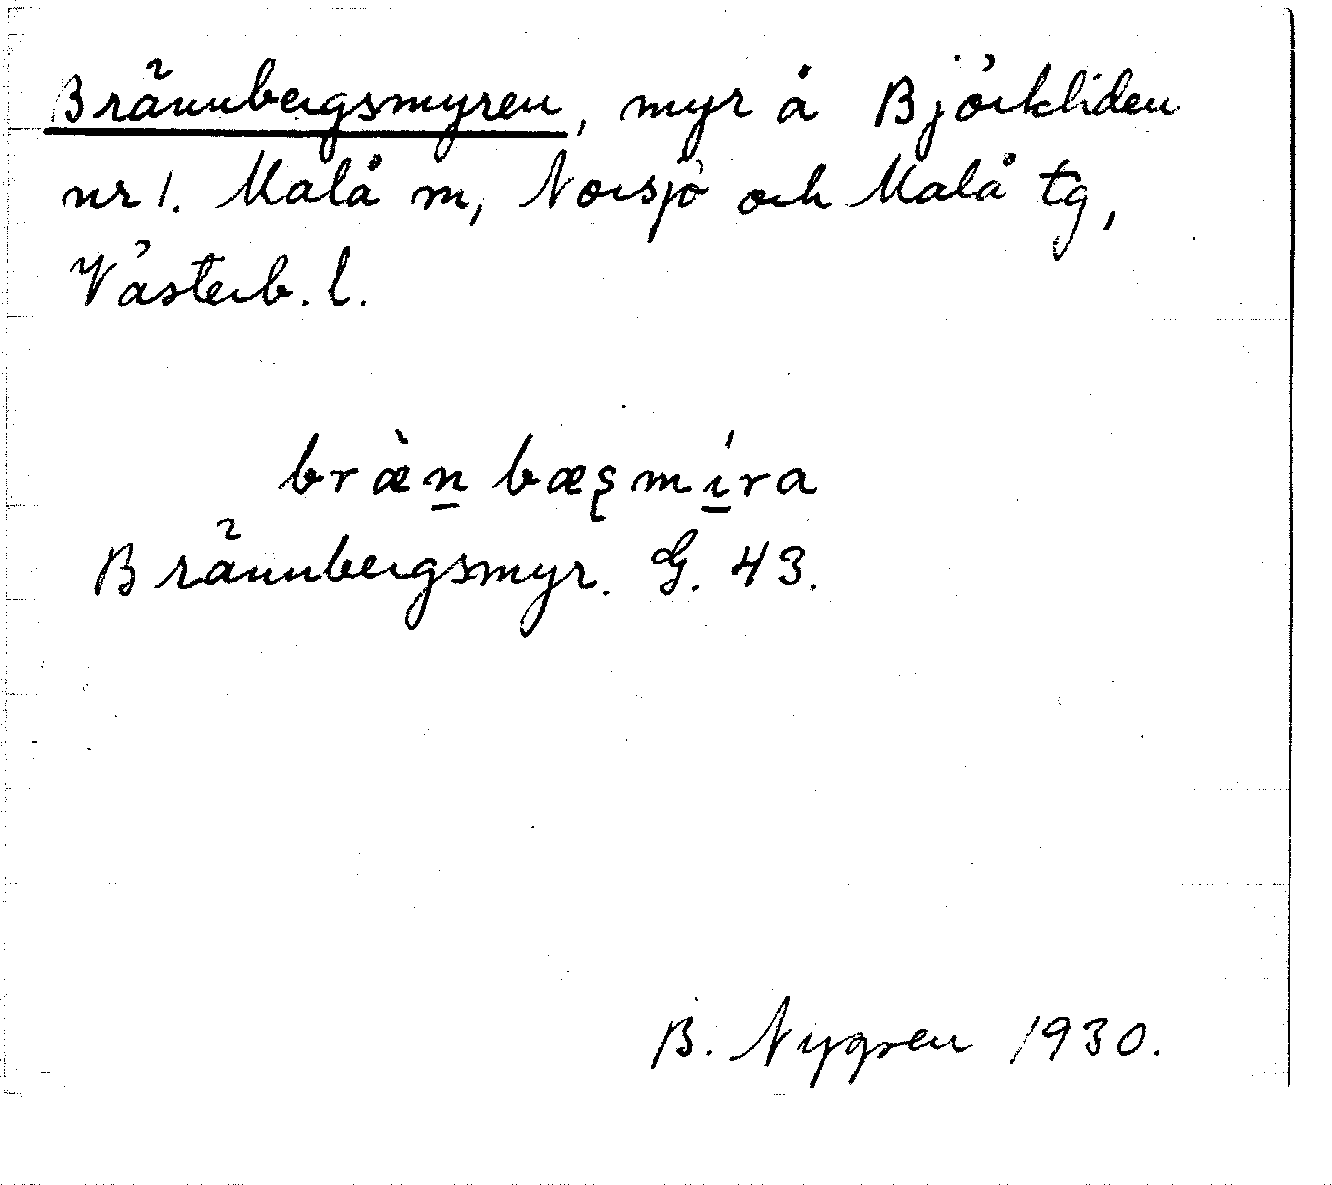 Brännbergsmyren, myr å Björkliden
nr 1. Malå sn, Norsjö och Malå tg,
Västerb. l.
bræ̀n̲ bæşmí̲ra
Brännbergsmyr. G. 43.
B. Nygren 1930.